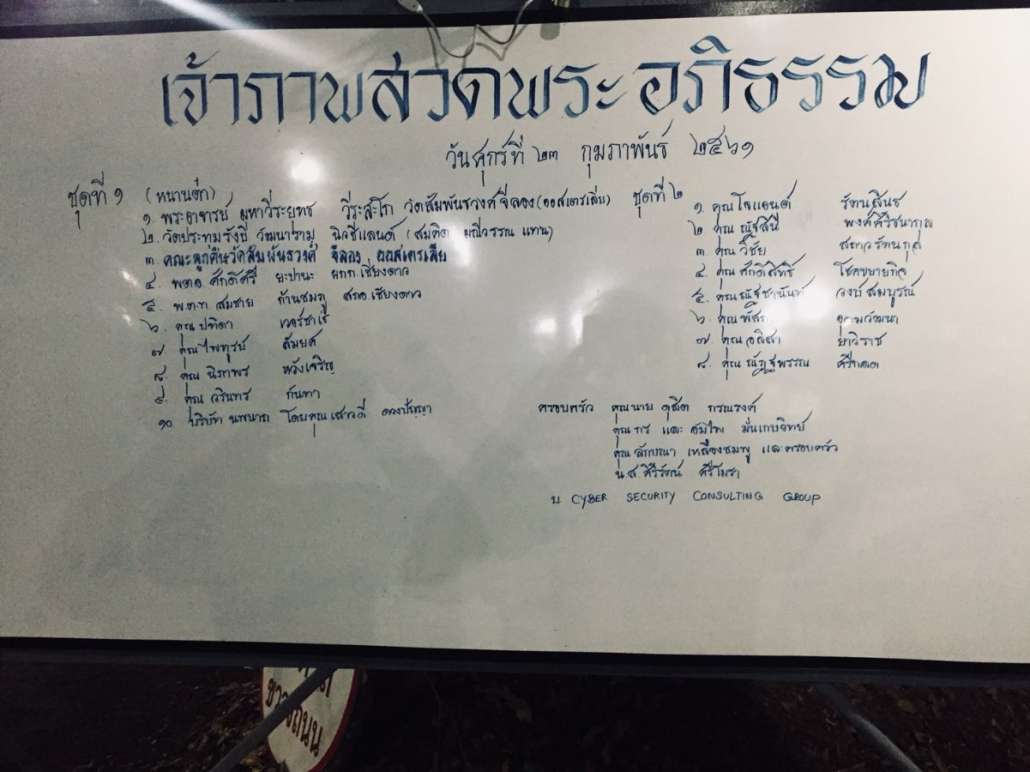 เจ้าภาพสวดพระอภิธรรม
วันศุกร์ที่ ๒๓ กุมภาพันธ์ ๒๕๖๑
ชุดที่ ๑ (หนานตั๋ก)
๑. พระอาจารย์ มหาวีระยุทธ วีระสะโก วัดสัมพันธวงศ์จำลอง (ออสเตรเลีย)
๒. วัดประทุมรังษี วัฒนาราม นิวซีแลนด์ (สมคิด มณีวรรณ แทน)
๓. คณะลูกศิษวัดสัมพันธวงศ์ จำลอง ออสเตรเลีย
๔ พ.ต.อ. ศักดิ์ศรี ยะปานะ ผกก. เชียงดาว
๕. พ.ต.ท. สมชาย ก้านชมภู สภอ. เชียงดาว
๖. คุณ ปทิดา เวอร์ชาเร่
๗ คุณไพฑูรย์ สมยศ
๘ คุณ นิภาพร หวังเจริญ
๙ คุณ วรินทร กันทา
๑๐ บริษัท โดยคุณเสาวดี ดวงปัญญา
ชุดที่ ๒
๑. คุณโจแอนด์ รัตนสินธ์
๒ คุณ ณัฐสินี
๓ คุณ วิชัย
๔ คุณ ศักดิ์สิทธิ์ โชคขยายกิจ
๕. คุณ ณัฐชานันท์ วงษ์สมบูรณ์
๖ คุณ
๗ คุณ อลิสา ยาวิราช
๘. คุณ ณัฏฐพรรณ
ครอบครัว คุณนาย ดุสิต
คุณ กร และ มั่นเกษวิทย์
คุณ ลักขณา เหลืองชมพู และครอบครัว
น.ส. ศิริรัตน์
บ CYBER SECURITY CONSULTING GROUP
ขางถนน